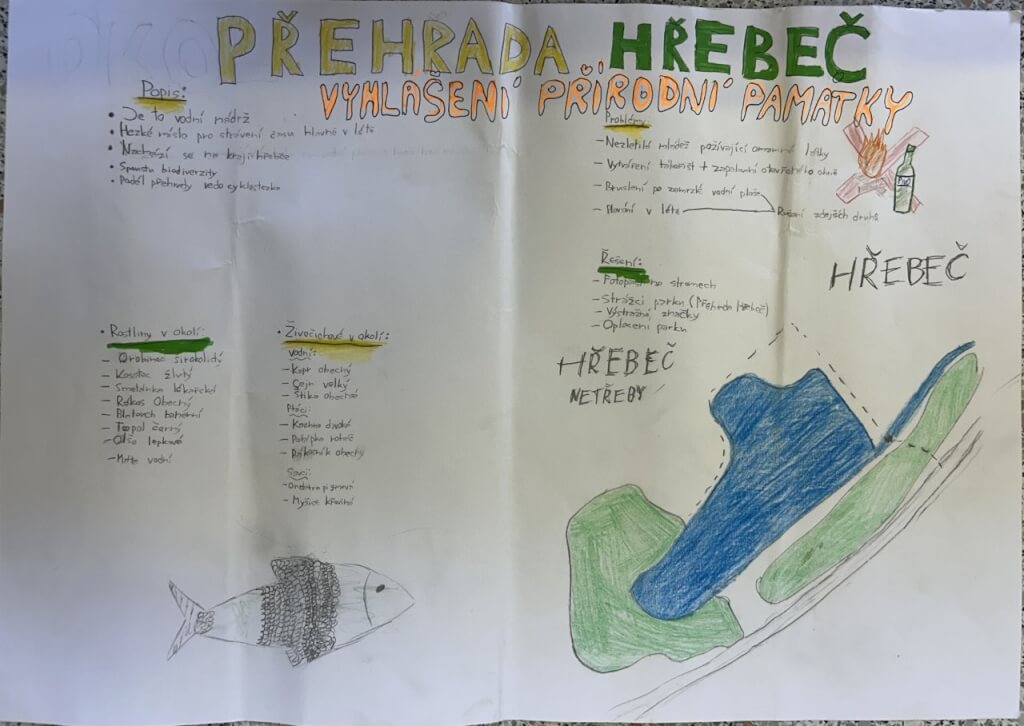 PŘEHRADA HŘEBEČ
VYHLÁŠENÍ PŘÍRODNÍ PAMÁTKY
Popis:
• Je to vodní nádrž
• Hezké místo pro strávení času hlavně v létě
• Nachází se na kraji Hřebče
• Spousta biodiverzity
• Podél přehrady vede cyklostezka
Problémy:
- Nezletilá mládež požívající omamné látky
- Vytváření táboršt + zapalování otevřeného ohně
- Bruslení po zamrzlé vodní ploše
- Plavání v létě
Rušení zdejších druhů
Řešení:
- Fotopasti na stromech
- Strážci parku (Přehrada Hřebeč)
- Výstražné značky
- Oplacení parku
HŘEBEČ
HŘEBEČ
NETŘEBY
• Rostliny v okolí:
- Orobinec širokolistý
- Kosatec žlutý
- Smetánka lékařská
- Rákos Obecný
- Blatouch bahenní
- Topol černý
- Olše lepkavá
- Máta vodní
• Živočichové v okolí:
Vodní:
- Kapr obecný
- Cejn velký
- Štika obecná
Ptáci:
- Kachna divoká
- Potápka roháč
- Rákosník obecný
Savci:
- Ondatra pižmová
- Myšice křovinná